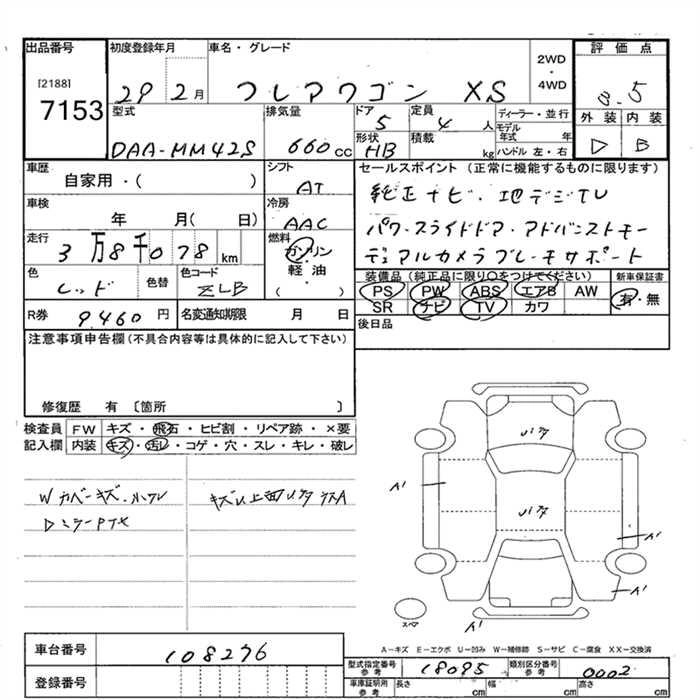 出品番号 初度登録年月 車名・グレード 2WD・4WD 評価点
[2188]
7153
29 2月 フレアワゴン XS 3.5
型式 排気量 ドア 5 定員 4 人 ディーラー・並行 外装 内装
DAA-MM42S 660cc 形状 HB 積載 kg モデル年式 年 ハンドル 左・右 D B
車歴 シフト セールスポイント (正常に機能するものに限ります)
自家用・( ) AT 純正ナビ・地デジTV
車検 冷房
年 月( 日) AAC パワースライドドア・アドバンストキー
走行 燃料
3万8千078km ガソリン デュアルカメラブレーキサポート
色 色替 色コード 軽油 装備品(純正品に限り○をつけてください) 新車保証書
レッド ZLB ( ) PS PW ABS エアB AW 有・無
R券 9.460円 名変通知期限 月 日 SR ナビ TV カワ
注意事項申告欄(不具合内容等は具体的に記入して下さい) 後日品
修復歴 有〔箇所 〕
検査員 FW キズ・飛石・ヒビ割・リペア跡・×要
記入欄 内装 キズ・汚レ・コゲ・穴・スレ・キレ・破レ
Wカバーキズ. キズ
Dミラー
A' A' A' A'
スペア
A-キズ E-エクボ U-凹み W-補修跡 S-サビ C-腐食 XX-交換済
車台番号 108276 型式指定番号 参考 18095 類別区分番号 参考 0002
登録番号 車庫証明用 参考 長さ cm 幅 cm 高さ cm